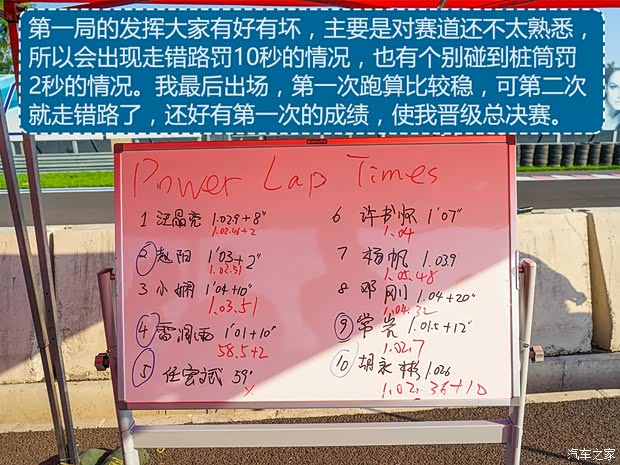 第一局的发挥大家有好有坏，主要是对赛道还不太熟悉，
所以会出现走错路罚10秒的情况，也有个别碰到桩筒罚
2秒的情况。我最后出场，第一次跑算比较稳，可第二次
就走错路了，还好有第一次的成绩，使我晋级总决赛。
Power Lap Times
1 汪晶亮 1.029+8"
1.02.46+2
2 赵阳 1'03+2"
1.02.51
3 小娴 1'04+10"
1.03.51
4 雷润雨 1'01+10"
58.5+2
5 任宏斌 59"
x
6 许书怀 1'07"
1.04
7 杨帆 1.039
1.05.48
8 邓刚 1.04+20"
1.04.32
9 常亮 1.01.5+12"
1.02.7
10 胡永彬 1.026
1.02.36+10
汽车之家